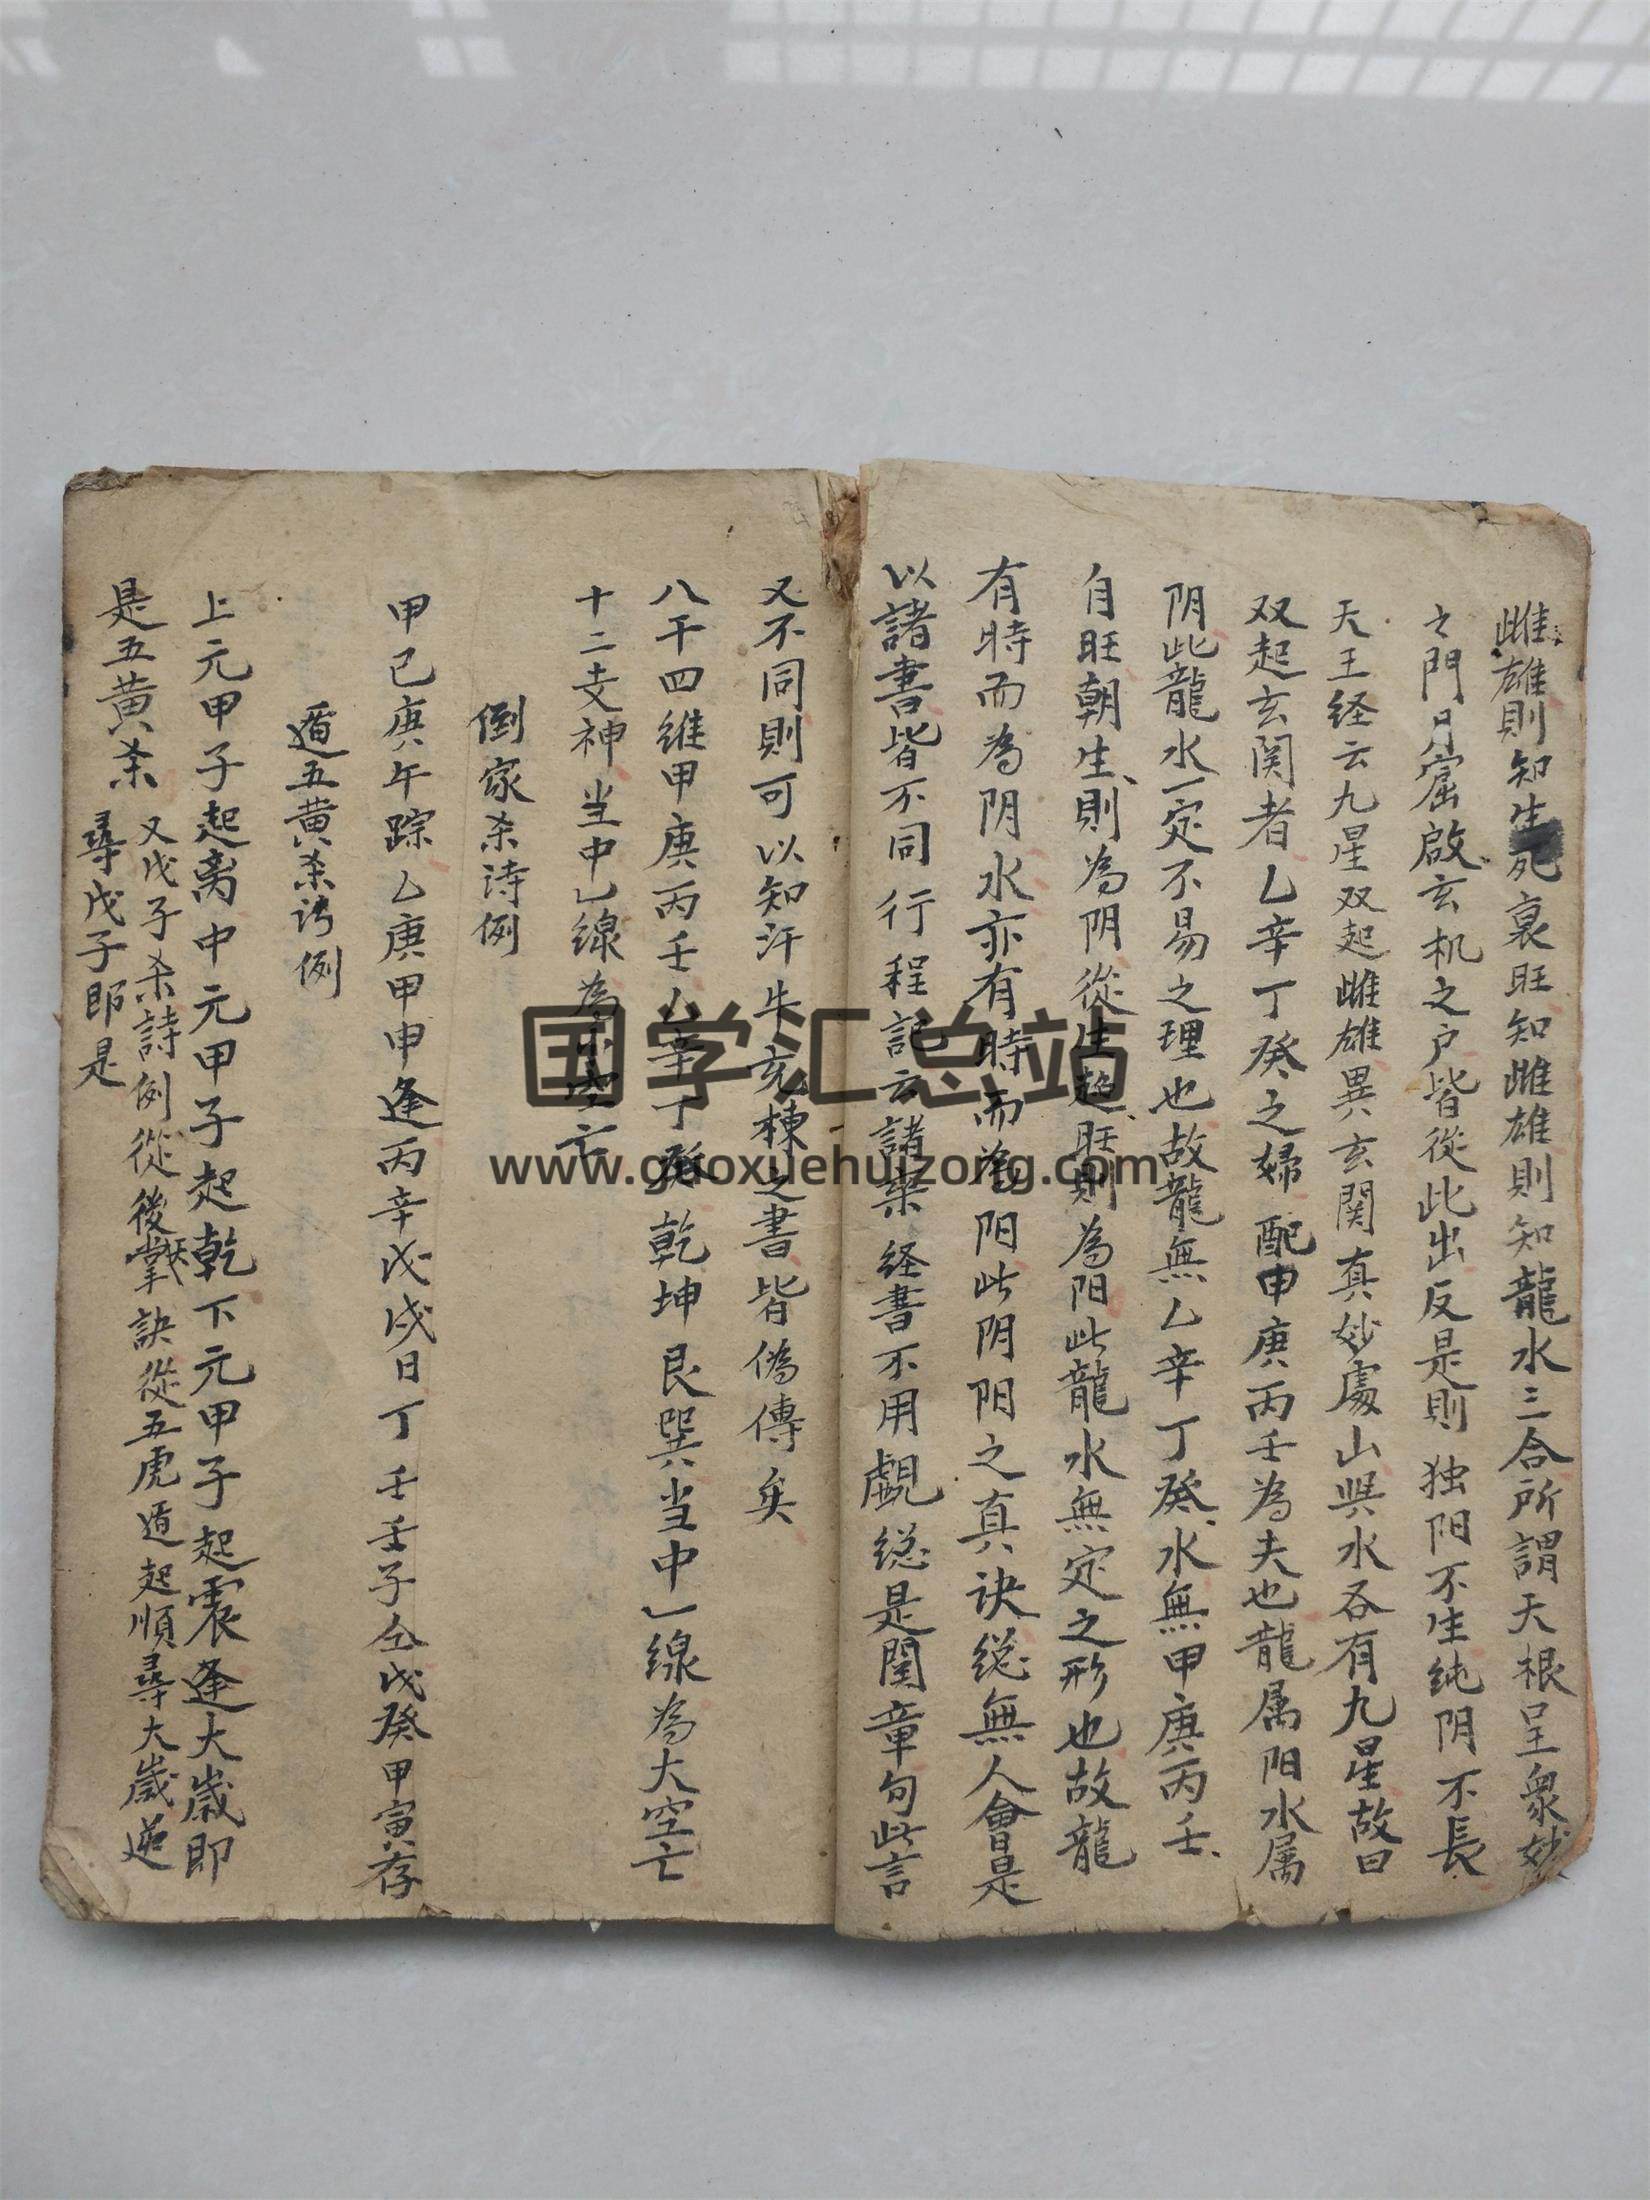 雌雄則知生死衰旺知雌雄則知龍水三合所謂天根呈衆妙
之門月窟啟玄机之户皆從此出反是則独阳不生纯阴不長
天王经云九星双起雌雄異玄関真妙處山與水各有九星故曰
双起玄関者乙辛丁癸之婦配甲庚丙壬為夫也龍属阳水属
阴此龍水一定不易之理也故龍無乙辛丁癸水無甲庚丙壬
自旺朝生則為阴從生趋旺則為阳此龍水無定之形也故龍
有時而為阴水亦有時而為阳此阴阳之真诀総無人會是
以諸書皆不同行程記云諸梁经書不用覷総是閨章句此言
又不同則可以知汗牛充棟之書皆偽傳矣
八干四維甲庚丙壬乙辛丁癸乾坤艮巽当中一線為大空亡
十二支神当中一線為小空亡
倒家杀诗例
甲己庚午踪乙庚甲申逢丙辛戊戌日丁壬壬子仝戊癸甲寅存
遁五黄杀诗例
上元甲子起离中元甲子起乾下元甲子起震逢大歲即
是五黄杀
又戊子杀詩例從後掌訣從五虎遁起順尋大歲逆
尋戊子即是
国学汇总站
www.guoxuehuizong.com